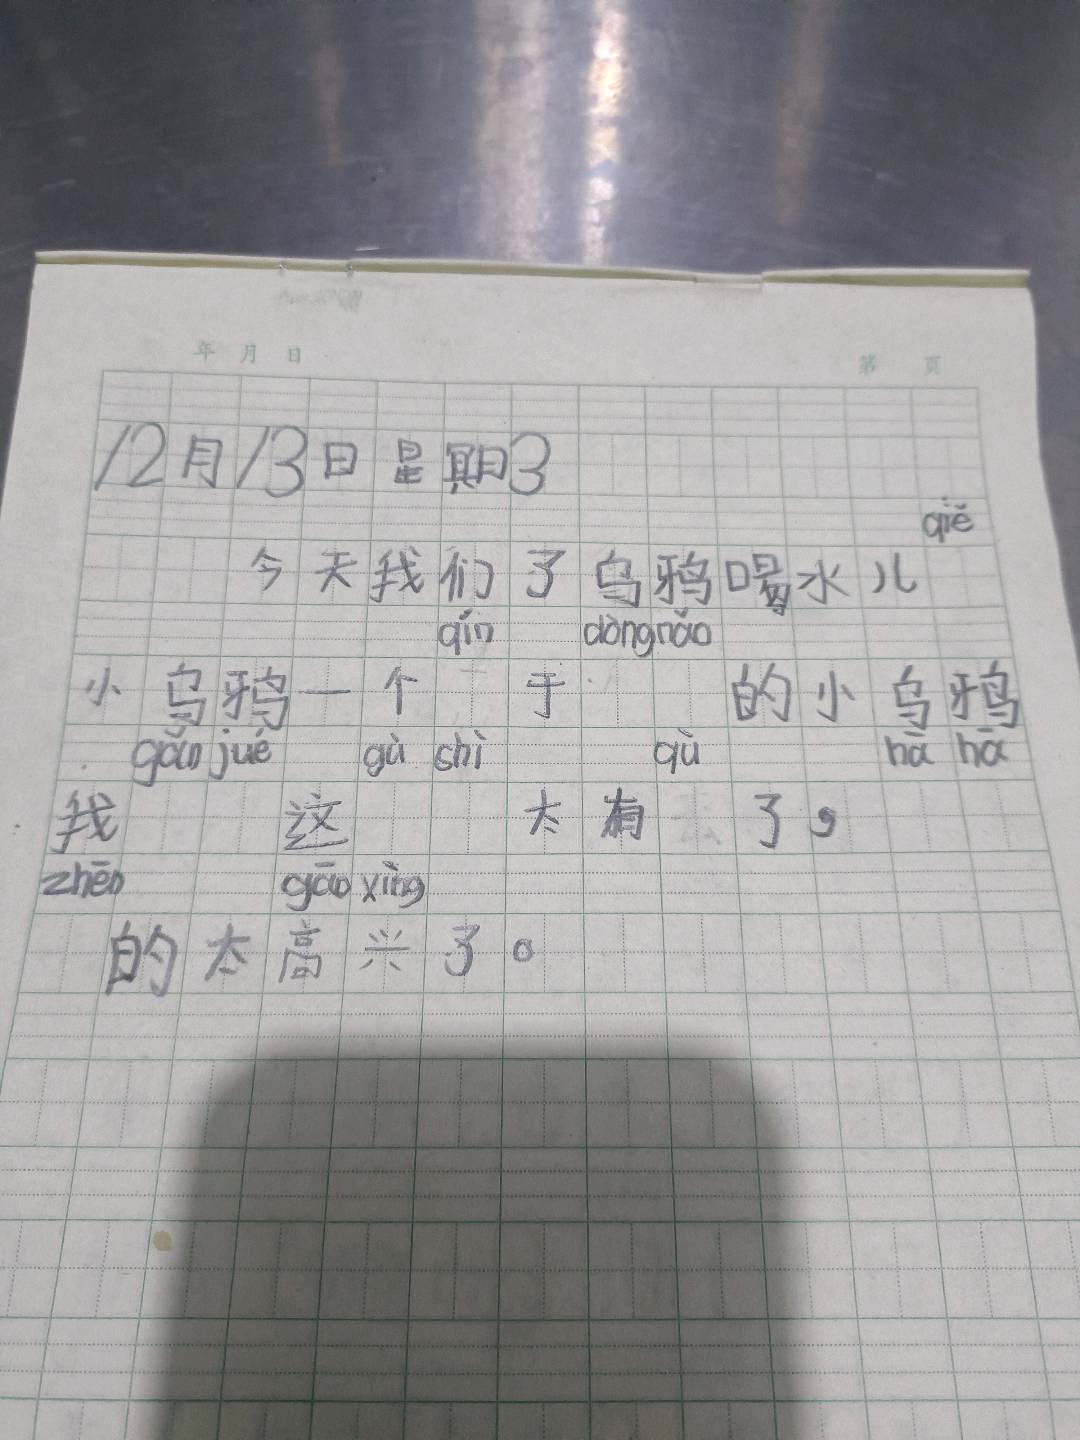 年 月 日 第 页
12月13日 星期3
qiě
今天我们了乌鸦喝水儿
qín dòngnǎo
小乌鸦一个 于 的小乌鸦
gǎn jué gù shì qù hā hā
我 这 太有 了。
zhēn gāo xìng
的太高兴了。